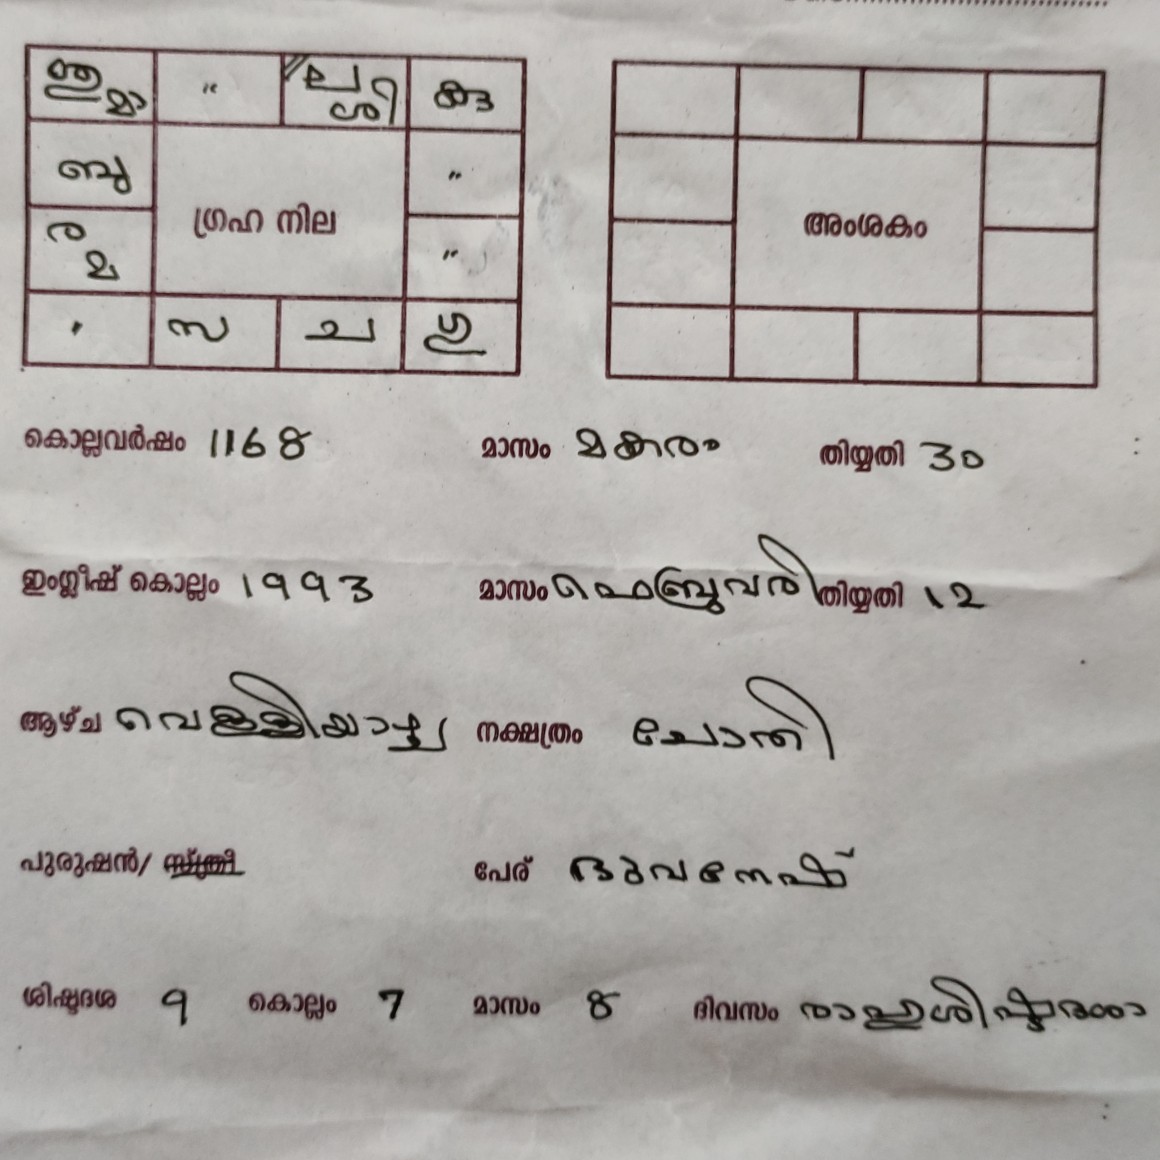 ശു " ല ശി കു
മ
ബു "
ഗ്രഹ നില അംശകം
ര
മ "
" സ ച ഗു
കൊല്ലവർഷം 1168 മാസം മകരം തിയ്യതി 30
ഇംഗ്ലീഷ് കൊല്ലം 1993 മാസം ഫെബ്രുവരി തിയ്യതി 12
ആഴ്ച വെള്ളിയാഴ്ച്ച നക്ഷത്രം ചോതി
പുരുഷൻ/ സ്ത്രീ പേര് ഭുവനേഷ്
ശിഷ്ടദശ 9 കൊല്ലം 7 മാസം 8 ദിവസം രാഹുശിഷ്ടദശാ